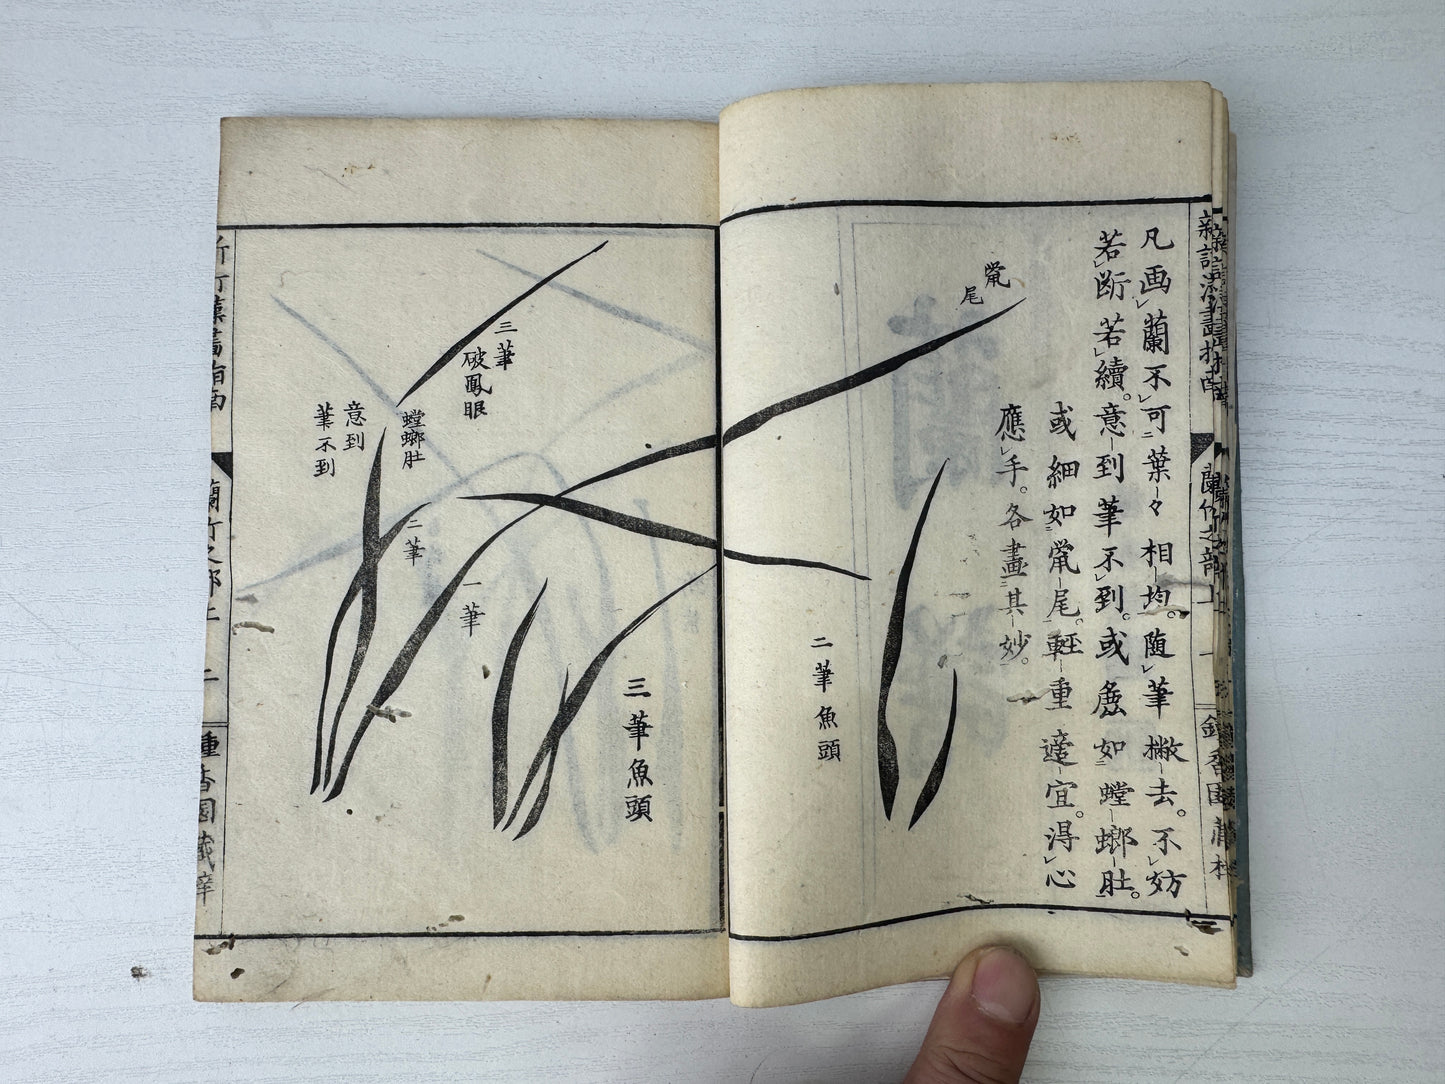 新訂漢畫指南
蘭竹之部
凡画蘭不可葉々相均。随筆撇去。不妨
若断若續。意到筆不到。或麁如螳螂肚。
或細如鼡尾。輕重適宜。淂心
應手。各盡其妙。
鼡
尾
二筆魚頭
三筆魚頭
三筆
破鳳眼
一筆
二筆
螳螂肚
意到
筆不到
新訂漢畫指南
蘭竹之部上
二
種香園藏梓